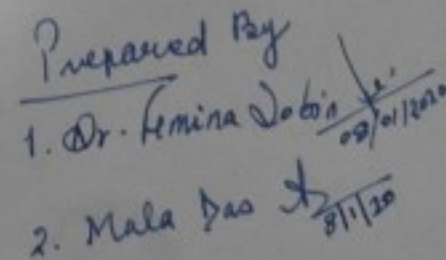 Prepared By
1. Dr. Femina Dobin 08/01/2020
2. Mala Das 8/1/20